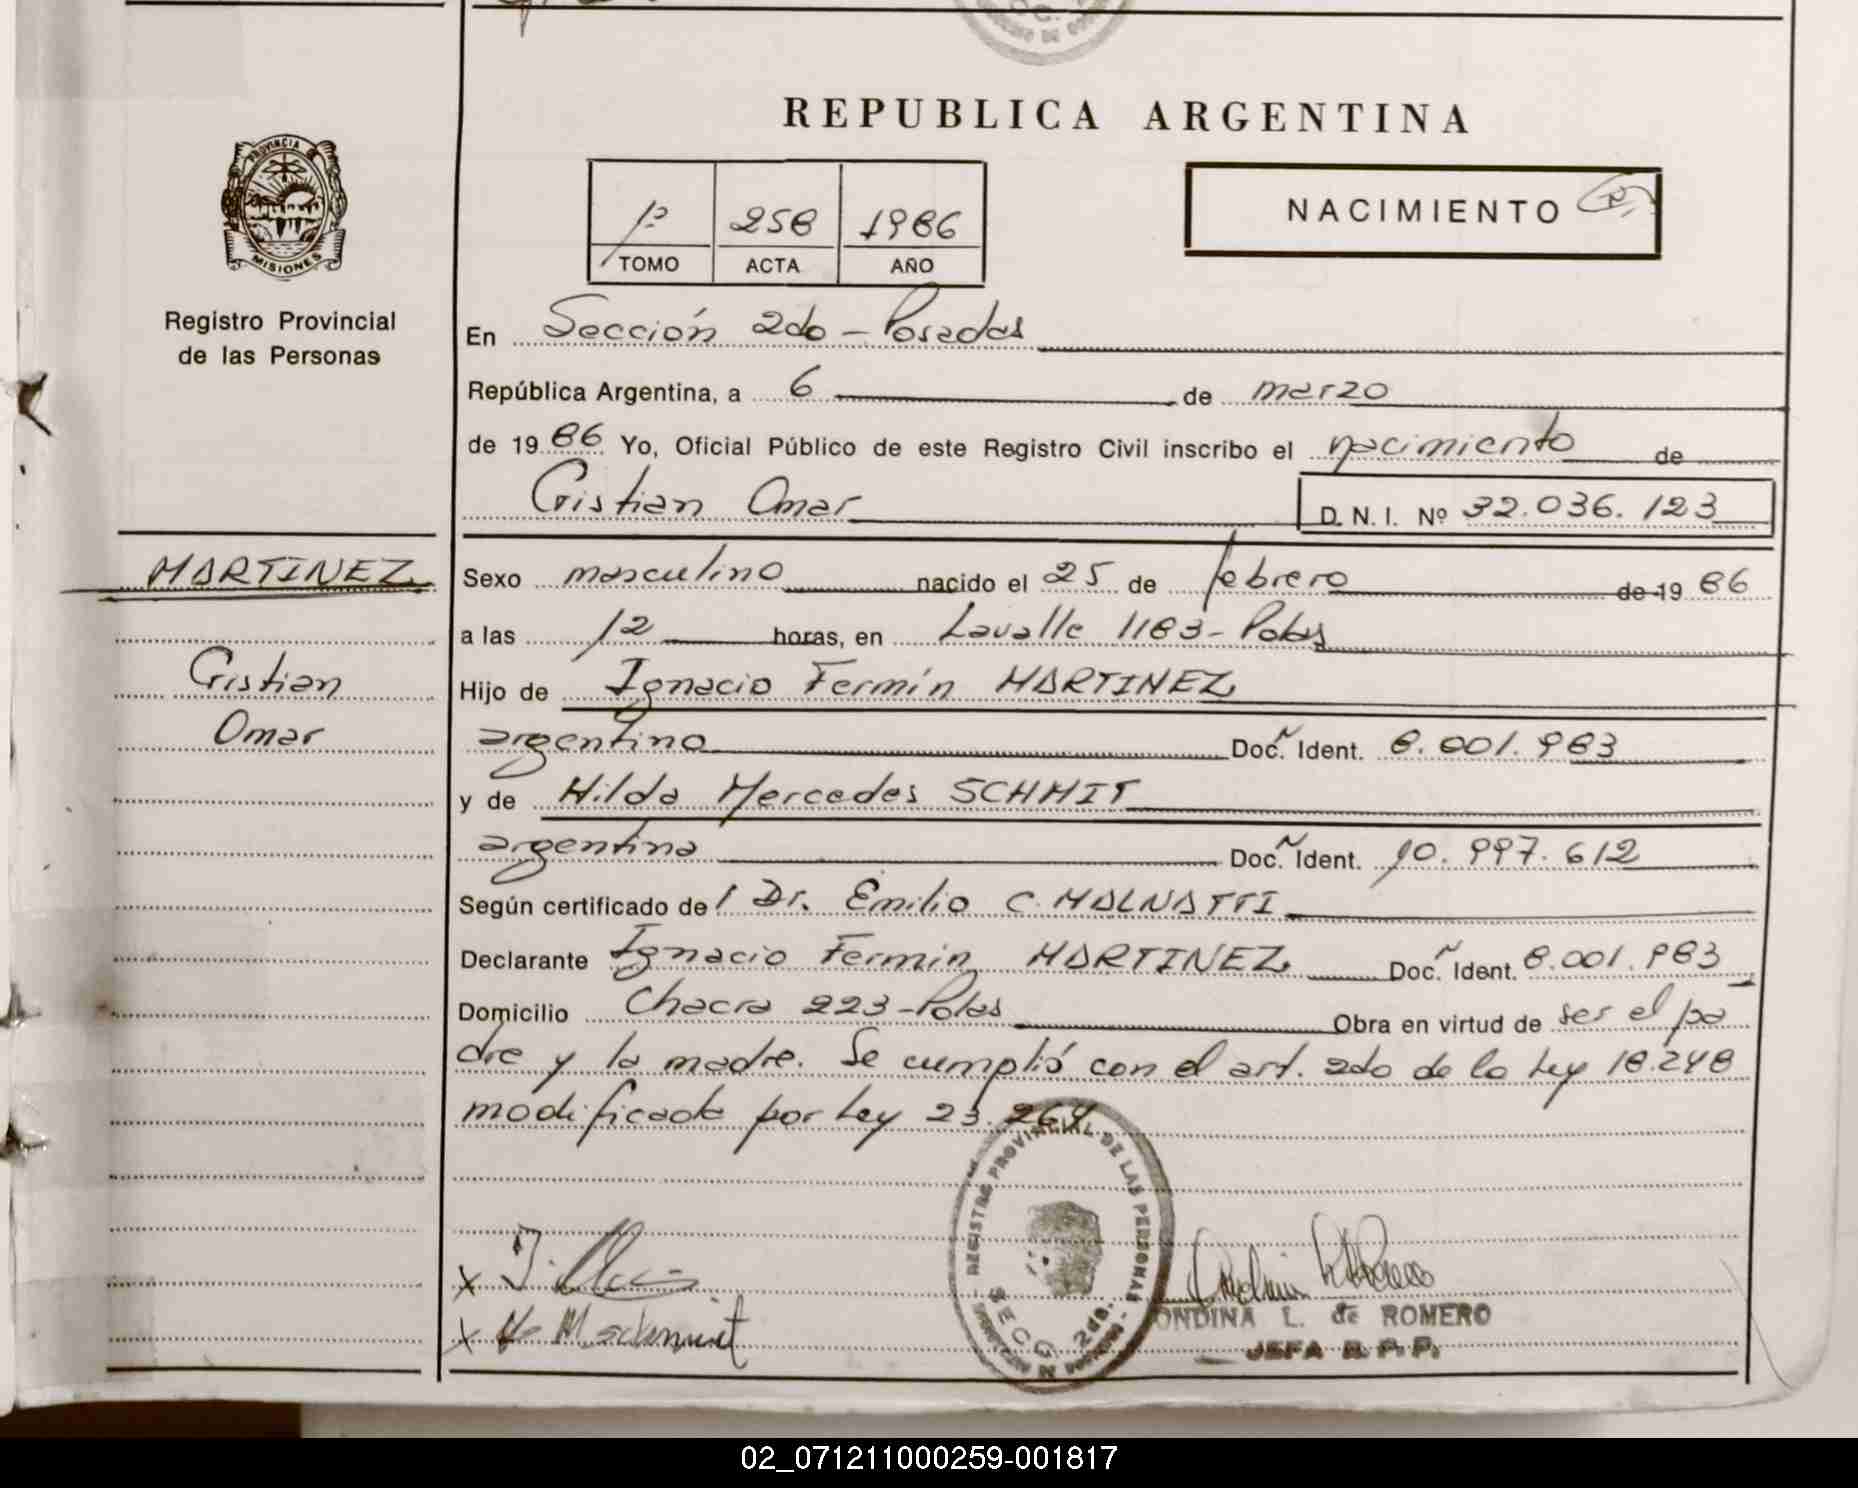 REPUBLICA ARGENTINA
PROVINCIA
MISIONES
Registro Provincial
de las Personas
1º 258 1986
TOMO ACTA AÑO
NACIMIENTO
En Sección 2do - Posadas
República Argentina, a 6 de marzo
de 1986 Yo, Oficial Público de este Registro Civil inscribo el nacimiento de
Cristian Omar D. N. I. Nº 32.036.123
MARTINEZ
Cristian
Omar
Sexo masculino nacido el 25 de febrero de 1986
a las 12 horas, en Lavalle 1183 - Pdas
Hijo de Ignacio Fermín MARTINEZ
argentino Doc. Ident. 8.001.983
y de Hilda Mercedes SCHMIT
argentina Doc. Ident. 10.997.612
Según certificado del Dr. Emilio C. MALNATTI
Declarante Ignacio Fermin MARTINEZ Doc. Ident. 8.001.983
Domicilio Chacra 223 - Pdas Obra en virtud de ser el pa
dre y la madre. Se cumplió con el art. 2do de la ley 18.248
modificada por ley 23.264
REGISTRO PROVINCIAL DE LAS PERSONAS
SECC. 2da.
x
x H M Schmit
ONDINA L. de ROMERO
JEFA R. P. P.
02_071211000259-001817